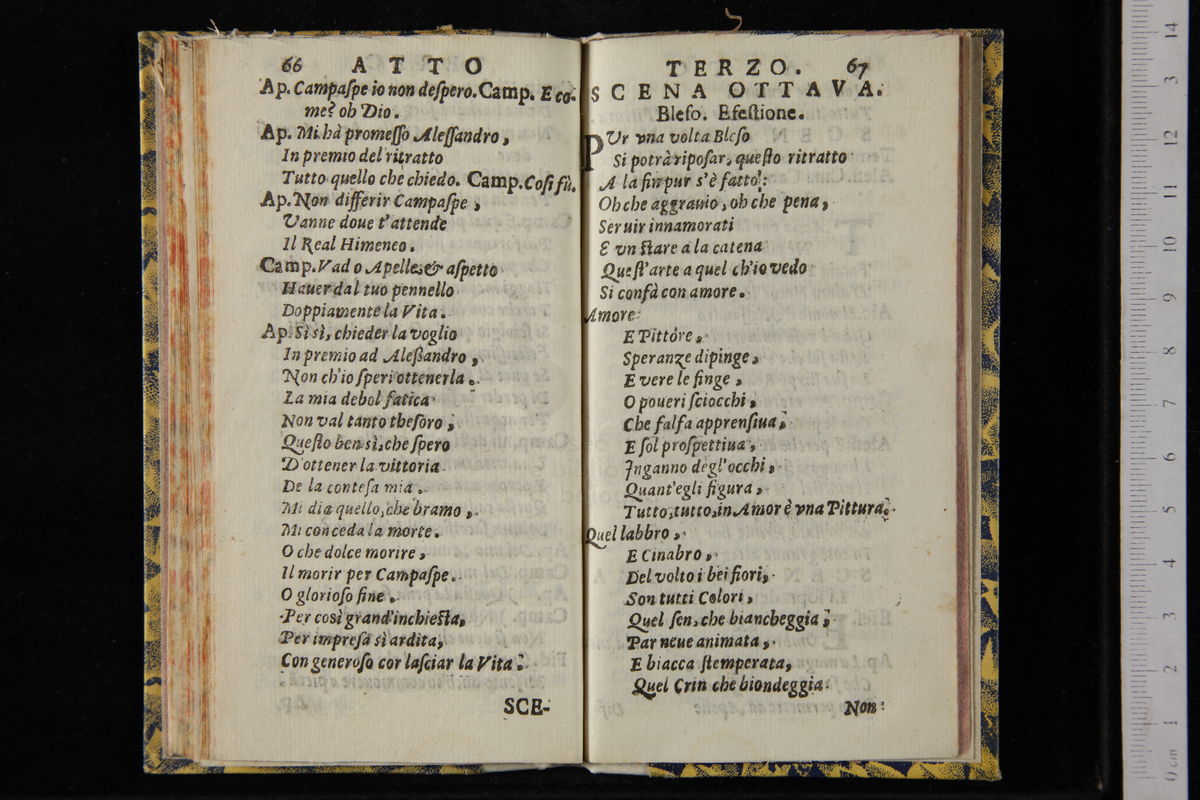 66 ATTO
Ap. Campaſpe io non deſpero. Camp. E co-
me? oh Dio.
Ap. Mi hà promeſſo Aleſſandro,
In premio del ritratto
Tutto quello che chiedo. Camp. Coſi fù.
Ap. Non differir Campaſpe,
Vanne doue t'attende
Il Real Himeneo.
Camp. Vado o Apelle, & aſpetto
Hauer dal tuo pennello
Doppiamente la Vita.
Ap. Sì sì, chieder la voglio
In premio ad Aleſſandro,
Non ch'io ſperi ottenerla.
La mia debol fatica
Non val tanto theſoro,
Queſto ben sì, che ſpero
D'ottener la vittoria
De la conteſa mia.
Mi dia quello, che bramo,
Mi conceda la morte.
O che dolce morire,
Il morir per Campaſpe.
O glorioſo fine.
Per così grand'inchieſta,
Per impreſa sì ardita,
Con generoſo cor laſciar la Vita.
SCE-
TERZO. 67
SCENA OTTAVA.
Bleſo. Efeſtione.
PUr vna volta Bleſo
Si potrà ripoſar, queſto ritratto
A la fin pur s'è fatto:
Oh che aggrauio, oh che pena,
Seruir innamorati
E vn ſtare a la catena
Queſt'arte a quel ch'io vedo
Si confà con amore.
Amore
E Pittore,
Speranze dipinge,
E vere le finge,
O poueri ſciocchi,
Che falſa apprenſiua,
E ſol proſpettiua,
Inganno degl'occhi,
Quant'egli figura,
Tutto, tutto, in Amor è vna Pittura.
Quel labbro,
E Cinabro,
Del volto i bei fiori,
Son tutti Colori,
Quel ſen, che biancheggia,
Par neue animata,
E biacca ſtemperata,
Quel Crin che biondeggia
Non
0 cm 1 2 3 4 5 6 7 8 9 10 11 12 3 14